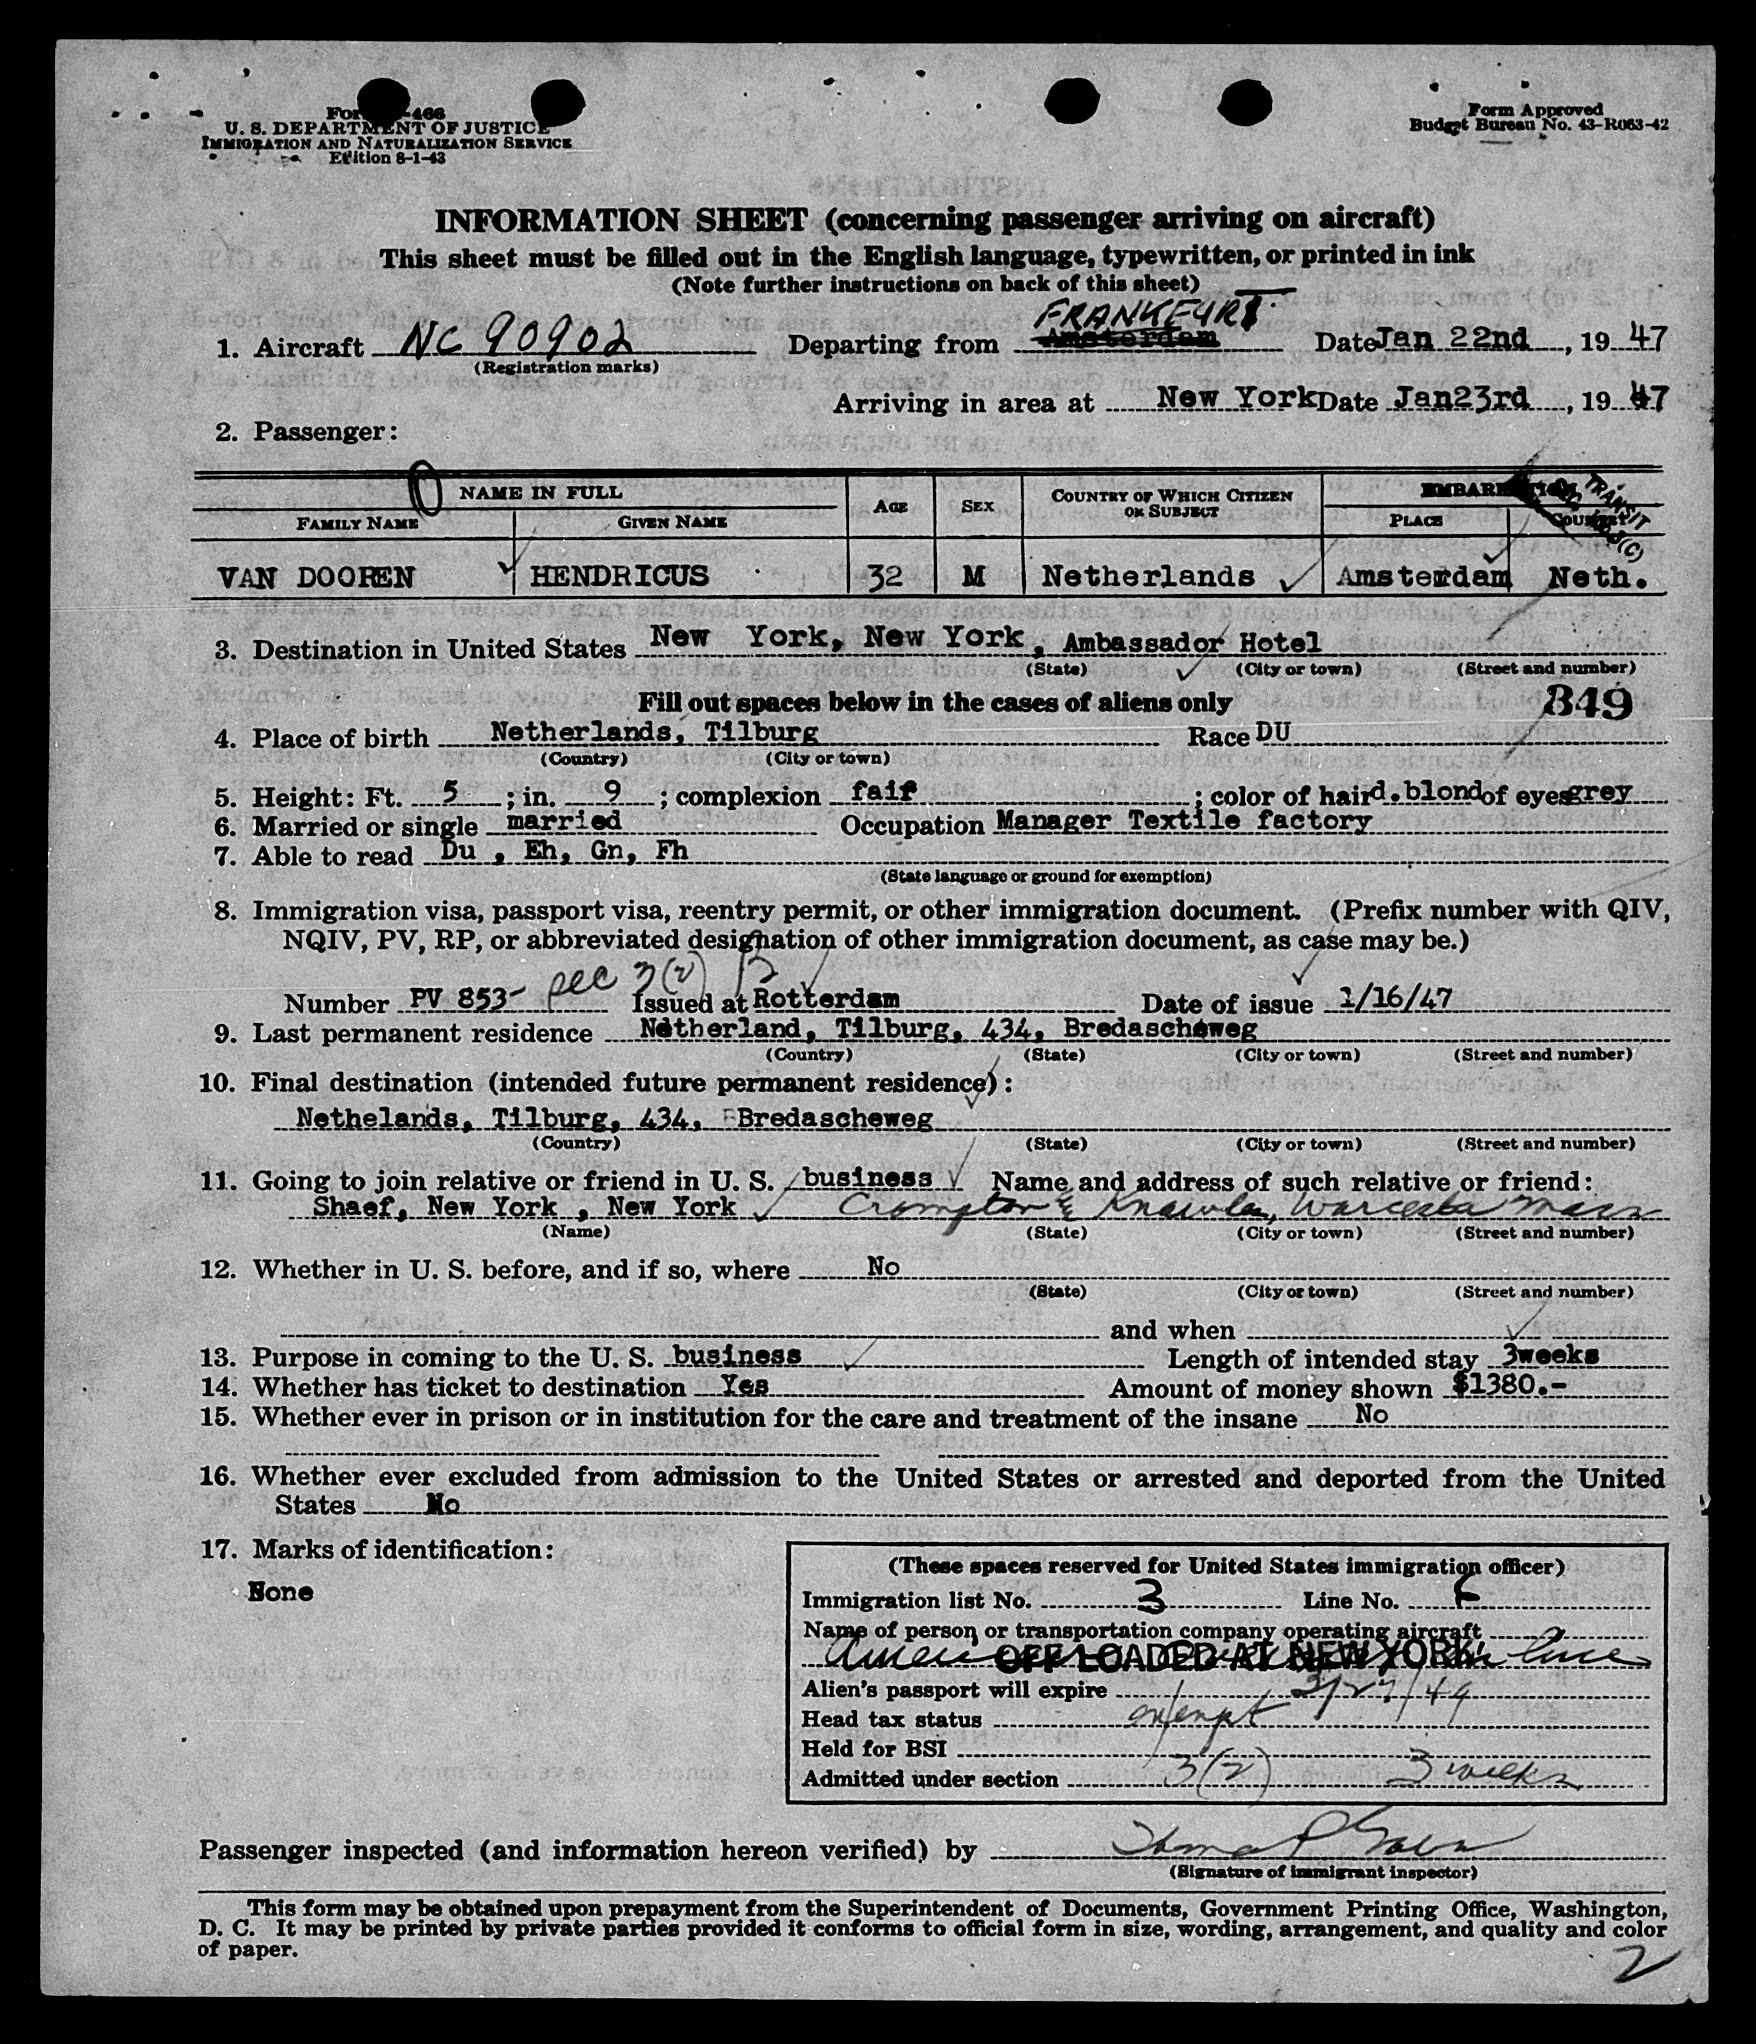 Form -466
U. S. DEPARTMENT OF JUSTICE
IMMIGRATION AND NATURALIZATION SERVICE
Edition 8-1-43
Form Approved
Budget Bureau No. 43-R063-42
INFORMATION SHEET (concerning passenger arriving on aircraft)
This sheet must be filled out in the English language, typewritten, or printed in ink
(Note further instructions on back of this sheet)
FRANKFURT
1. Aircraft NC 90902 Departing from Amsterdam Date Jan 22nd, 19 47
(Registration marks)
Arriving in area at New York Date Jan23rd, 19 47
2. Passenger:
NAME IN FULL AGE SEX COUNTRY OF WHICH CITIZEN OR SUBJECT EMBARKATION TRANSIT
FAMILY NAME GIVEN NAME PLACE COUNTRY
VAN DOOREN HENDRICUS 32 M Netherlands Amsterdam Neth.
3. Destination in United States New York, New York, Ambassador Hotel
(State) (City or town) (Street and number)
Fill out spaces below in the cases of aliens only 849
4. Place of birth Netherlands, Tilburg Race DU
(Country) (City or town)
5. Height: Ft. 5; in. 9; complexion fair; color of hair d.blond of eyes grey
6. Married or single married Occupation Manager Textile factory
7. Able to read Du , Eh, Gn, Fh
(State language or ground for exemption)
8. Immigration visa, passport visa, reentry permit, or other immigration document. (Prefix number with QIV,
NQIV, PV, RP, or abbreviated designation of other immigration document, as case may be.)
Number PV 853- sec 3(2) B Issued at Rotterdam Date of issue 1/16/47
9. Last permanent residence Netherland, Tilburg, 434, Bredascheweg
(Country) (State) (City or town) (Street and number)
10. Final destination (intended future permanent residence):
Nethelands, Tilburg, 434, Bredascheweg
(Country) (State) (City or town) (Street and number)
11. Going to join relative or friend in U. S. business Name and address of such relative or friend:
Shaef, New York , New York Crompton & Knowles, Worcester Mass
(Name) (State) (City or town) (Street and number)
12. Whether in U. S. before, and if so, where No
(State) (City or town) (Street and number)
and when
13. Purpose in coming to the U. S. business Length of intended stay 3weeks
14. Whether has ticket to destination Yes Amount of money shown $1380.-
15. Whether ever in prison or in institution for the care and treatment of the insane No
16. Whether ever excluded from admission to the United States or arrested and deported from the United
States No
17. Marks of identification:
None
(These spaces reserved for United States immigration officer)
Immigration list No. 3 Line No. 6
Name of person or transportation company operating aircraft
American Overseas Airlines
OFF LOADED AT NEW YORK
Alien's passport will expire 3/27/49
Head tax status exempt
Held for BSI
Admitted under section 3(2) 3 weeks
Passenger inspected (and information hereon verified) by Thomas P
(Signature of immigrant inspector)
This form may be obtained upon prepayment from the Superintendent of Documents, Government Printing Office, Washington,
D. C. It may be printed by private parties provided it conforms to official form in size, wording, arrangement, and quality and color
of paper.
2